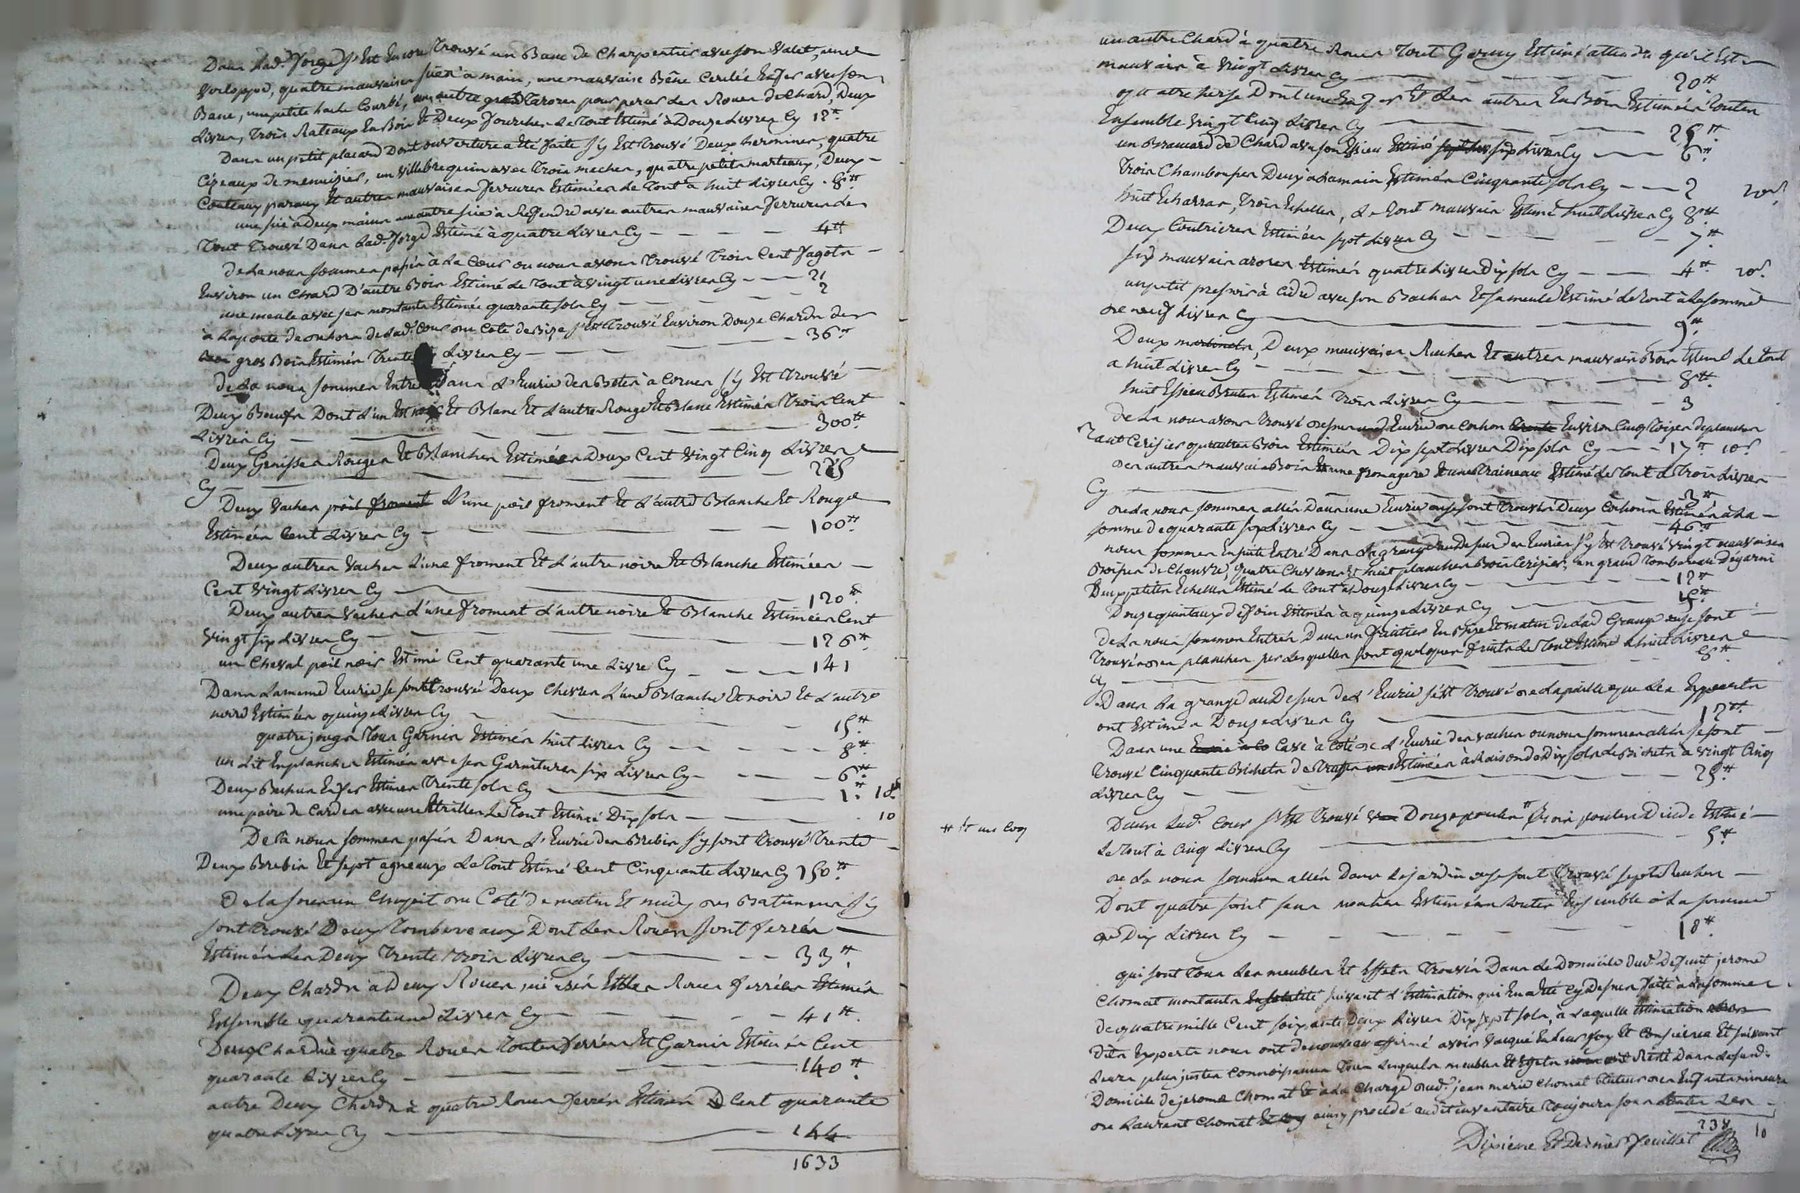 Dans lad. forge s'est encore trouvé un Banc de Charpentié avec son valet, une
quatre mauvaises sies à main, une mauvaise
Banc, une petite hache Courbe, un autre gros Tarores pour percer les Roues de Chard, Deux
Livres, Trois Rateaux En Bois Et Deux fourches Le tout Estimé à Douze Livres Cy 12#
Dans un petit placard Dont ouverture a Eté faite s'y Est trouvé Deux herminex, quatre
Cizeaux de menuisier, un villebrequin avec Trois meches, quatre petits marteaux, Deux
Couteaux paroux Et autres mauvaises ferrures Estimées Le Tout à huit Livres Cy 8#
une sie à Deux mains une autre sie à Refendre avec autres mauvaises ferrures Le
Tout Trouvé Dans Lad. forge Estimé à quatre Livres Cy 4#
de La nous sommes passés à La Cour ou nous avons Trouvé Trois Cent fagots
Environ un Chard D'autre Bois Estimé Le Tout à vingt une Livres Cy 21
une meule avec ses montants Estimée quarante sols Cy 2
à La porte de dehors de Lad. Cour du Coté de Bize s'est Trouvé Environ Douze Chards de
gros Bois Estimés Trente Livres Cy 36#
de La nous sommes Entré Dans L'Eurie des Betes à Cornes s'y Est Trouvé
Deux Bœufs Dont L'un Est noir Et Blanc Et L'autre Rouge Et Blanc Estimés Trois Cent
Livres Cy 300#
Deux Genisses Rouges Et Blanches Estimées Deux Cent vingt Cinq Livres
Cy 225
Deux vaches poil froment L'une poil froment Et L'autre Blanche Et Rouge
Estimées Cent Livres Cy 100#
Deux autres vaches L'une froment Et L'autre noire Et Blanche Estimées
Cent vingt Livres Cy 120#
Deux autres vaches L'une froment L'autre noire Et Blanche Estimées Cent
vingt six Livres Cy 126#
un Cheval poil noir Estimé Cent quarante une Livre Cy 141
Dans La meme Eurie se sont trouvé Deux Chevres L'une Blanche Et noir Et L'autre
noire Estimées quinze Livres Cy 15#
quatre jougs Tous Garnis Estimés huit Livres Cy 8#
un Lit En plancher Estimé avec ses Garnitures six Livres Cy 6#
Deux En fer Estimés Trente sols Cy 1# 10s
une paire de Cardes avec une Etrille Le Tout Estimé Dix sols 10
De La nous sommes passés Dans L'Eurie des Brebis s'y sont Trouvé Trente
Deux Brebis Et sept agneaux Le Tout Estimé Cent Cinquante Livres Cy 150#
De la sous un du Coté de matin Et midy des Batiments s'y
sont Trouvé Deux Tombereaux Dont Les Roues sont ferrées
Estimés Les Deux Trente Trois Livres Cy 33#
Deux Chards à Deux Roues Roues ferrées Estimés
Ensemble quarante une Livres Cy 41#
Deux Chards à quatre Roues Toutes ferrées Et Garnis Estimés Cent
quarante Livres Cy 140#
autre Deux Chards à quatre Roues ferrées Estimés Cent quarante
quatre Livres Cy 144
1633
un autre Chard à quatre Roues Tout Garny Estimé attendu qu'il Est
mauvais à vingt Livres Cy 20#
quatre herse Dont une En fer Et Les autres En Bois Estimées Toutes
Ensemble vingt Cinq Livres Cy 25#
un Brancard de Chard avec son Essieu Estimé six Livres Cy 6#
Trois Deux à La main Estimés Cinquante sols Cy 2 10s
huit Echarras, Trois Echelles, Le Tout mauvais Estimé huit Livres Cy 8#
Deux Coutrieres Estimées sept Livres Cy 7#
six mauvais arores Estimés quatre Livres Dix sols Cy 4# 10s
un petit pressoir à Cidre avec son Bachas Et sa meule Estimé Le Tout à La somme
de neuf Livres Cy 9#
Deux Deux mauvaises Ruches Et autres mauvais Bois Estimé Le Tout
à huit Livres Cy 8#
huit Essieux Bruts Estimés Trois Livres Cy 3
de La nous avons Trouvé dessus Eurie de Cochon Environ Cinq Toises de planches
Tant Cerisier qu'autres Bois Estimées Dix sept Livres Dix sols Cy 17# 10s
des autres mauvais Bois Et une fromagere Et une Traineau Estimé Le Tout à Trois Livres
Cy 3#
de La nous sommes allés Dans une Eurie ou se sont Trouvés Deux Cochons Estimés à La
somme de quarante six Livres Cy 46#
nous sommes Ensuite Entré Dans La grange au Dessus des Euries s'y Est Trouvé vingt mauvaises
de Chanvre, quatre Chevrons Et huit planches Bois Cerisier, un grand Tombereau Dégarni
Deux petites Echelles Estimé Le Tout à Douze Livres Cy 12#
Douze quintaux de foin Estimés à quinze Livres Cy 15#
de La nous sommes Entrés Dans un fruitier En Bize Et matin de Lad Grange ou se sont
Trouvés des planches sur Lesquelles sont quelques fruits Le Tout Estimé à huit Livres
Cy 8#
Dans La grange au Dessus de L'Eurie s'est Trouvé de La paille que Les Experts
ont Estimé à Douze Livres Cy 12#
Dans une Cave à Coté de L'Eurie des vaches ou nous sommes allés se sont
Trouvé Cinquante Bichets de Estimées à Raison de Dix sols Le Bichet à vingt Cinq
Livres Cy 25#
Dans Lad. Cour s'est Trouvé Douze poules # Trois poules D'inde Estimé
Le Tout à Cinq Livres Cy 5#
# Et un Coq
de La nous sommes allés Dans Le jardin ou se sont Trouvé sept Ruches
Dont quatre sont sans mouches Estimées Toutes Ensemble à La somme
de Dix Livres Cy 10#
qui sont Tous Les meubles Et Effets Trouvés Dans Le Domicile dud. Defunt jerome
Chomat montants suivant L'Estimation qui En a Eté Cy Dessus faite à La somme
de quatre mille Cent soixante Deux Livres Dix sept sols, à Laquelle Estimation
Dits Experts nous ont affirmé avoir vacqué En Leur foy Et Conscience Et suivant
Leurs plus justes Connoissances Tous Lesquels meubles Et Effets Resté Dans Le susd.
Domicile de jerome Chomat Et à La Charge dud. jean marie Chomat tuteur des Enfants mineurs
de Laurant Chomat ainsy procédé audit inventaire Toujours sous Les
238 10
Dixieme Et Dernier feuillet